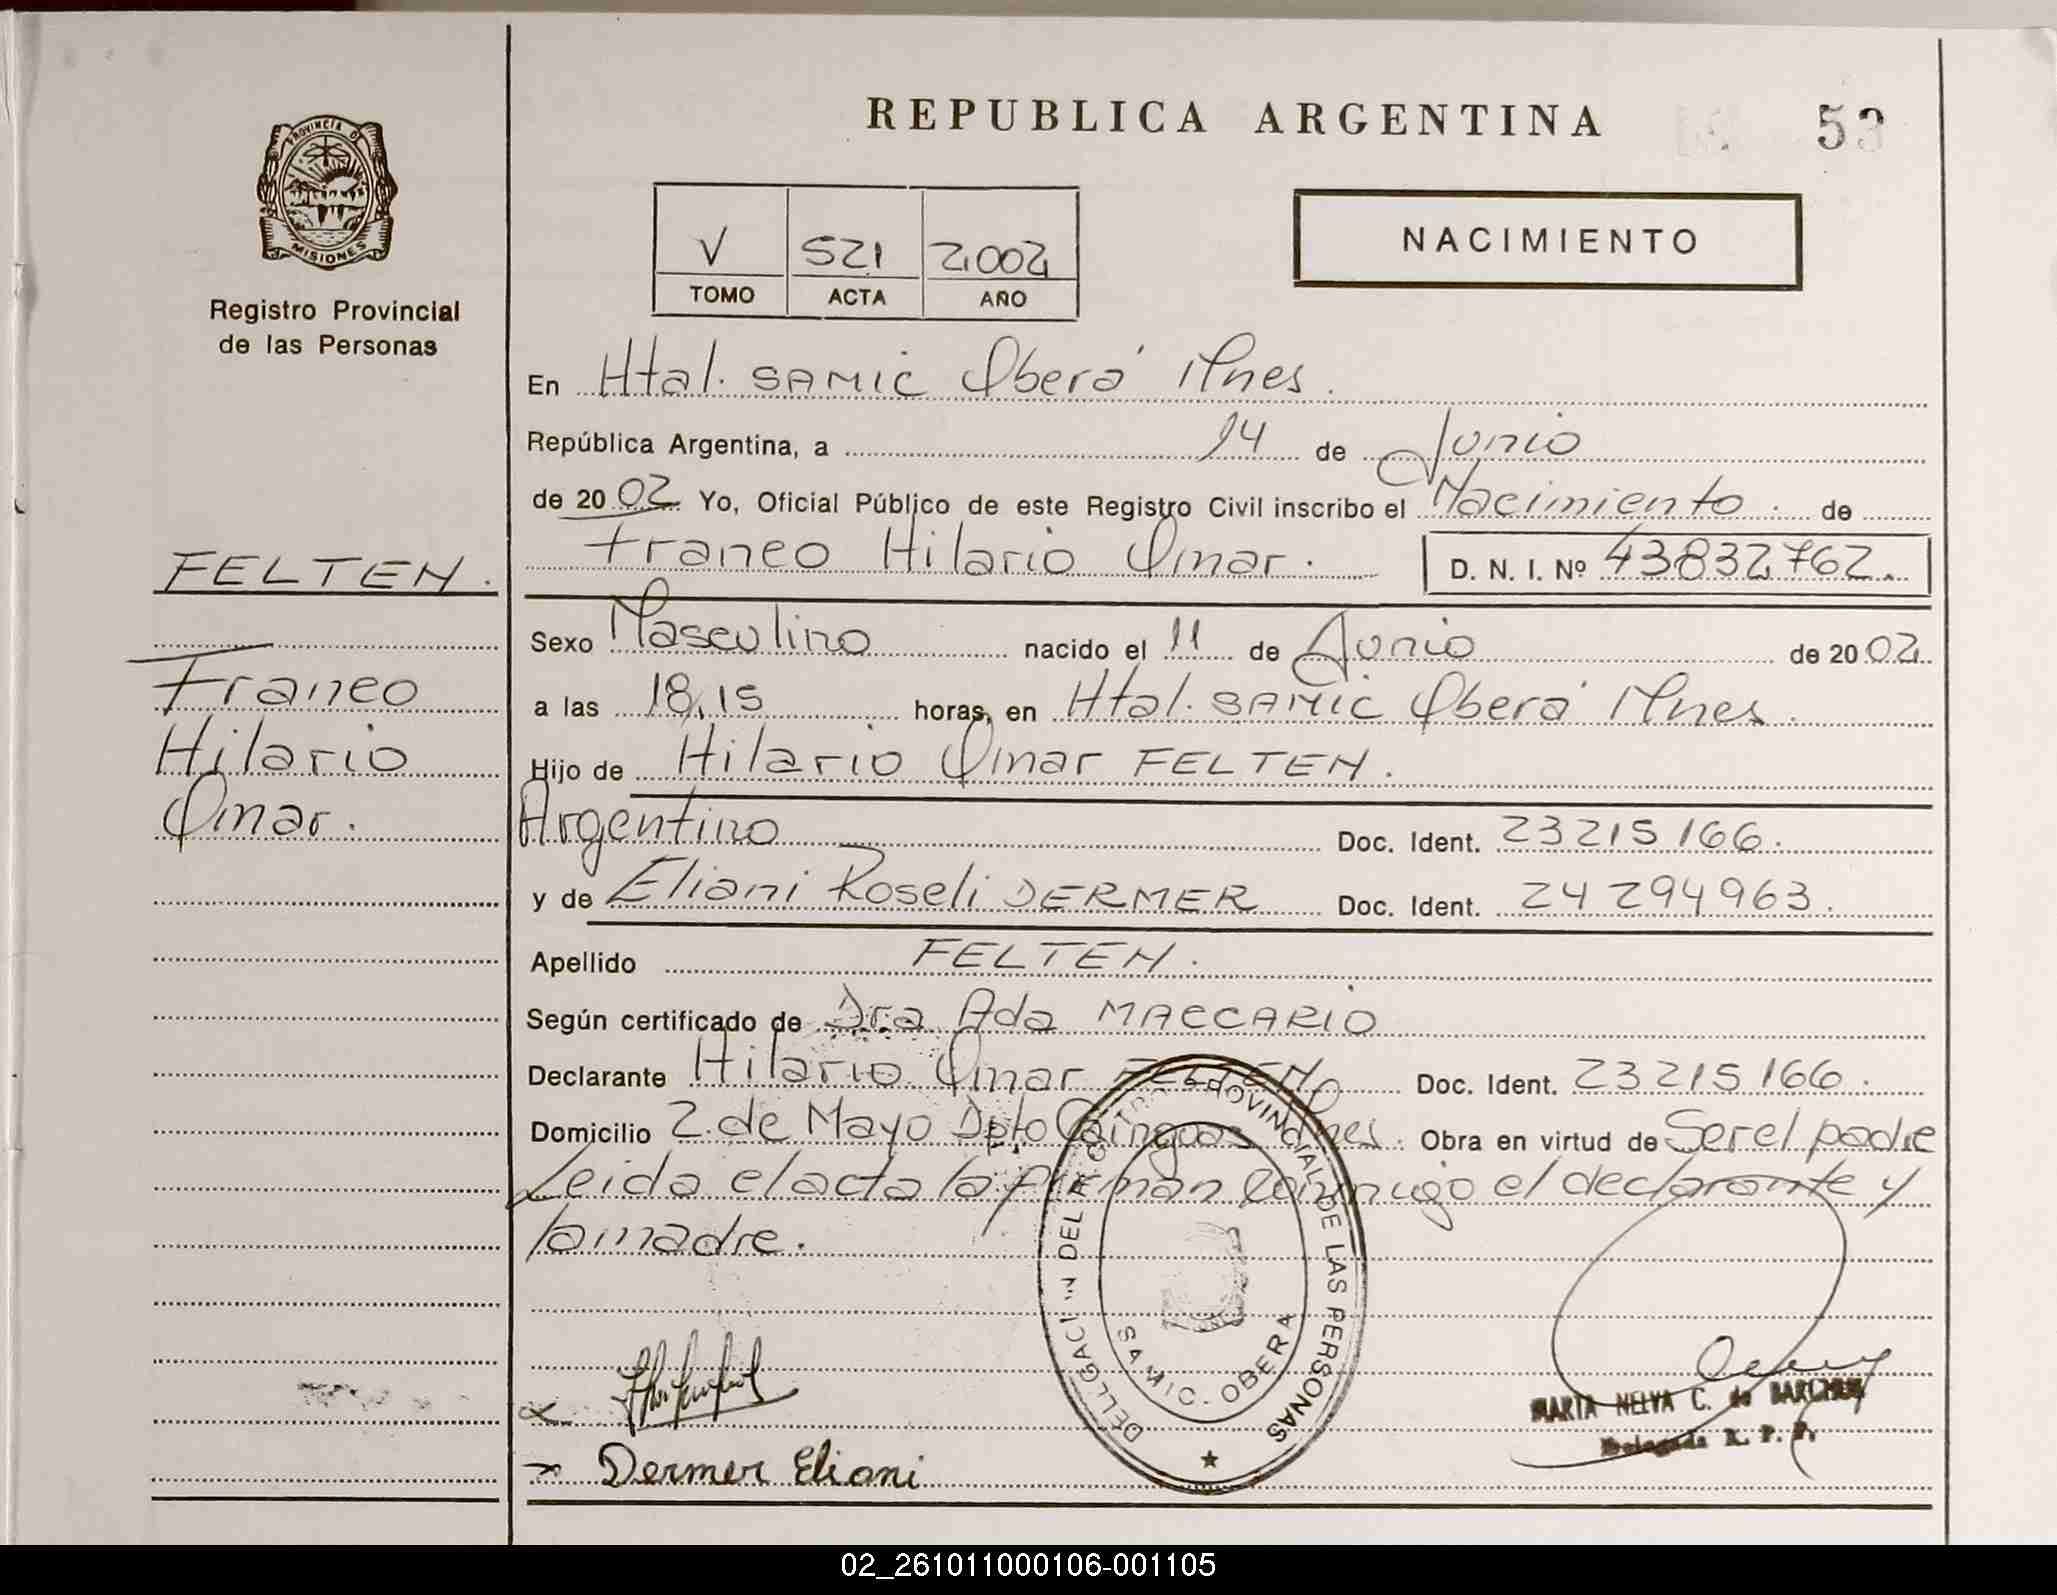 REPUBLICA ARGENTINA
53
PROVINCIA DE
MISIONES
Registro Provincial
de las Personas
V 521 2002
TOMO ACTA AÑO
NACIMIENTO
En Htal. SAMIC Oberá Mnes.
República Argentina, a 14 de Junio
de 2002 Yo, Oficial Público de este Registro Civil inscribo el Nacimiento de
Franco Hilario Omar. D. N. I. Nº 43832762.
FELTEN.
Franco
Hilario
Omar.
Sexo Masculino nacido el 11 de Junio de 2002
a las 18,15 horas, en Htal. SAMIC Oberá Mnes.
Hijo de Hilario Omar FELTEN.
Argentino Doc. Ident. 23215166.
y de Eliani Roseli DERMER Doc. Ident. 24294963.
Apellido FELTEN.
Según certificado de Dra Ada MACCARIO
Declarante Hilario Omar FELTEN Doc. Ident. 23215166.
Domicilio 2 de Mayo Dpto Cainguas Mnes. Obra en virtud de Ser el padre
Leida el acta la firman conmigo el declarante y
la madre.
DEL REGISTRO PROVINCIAL DE LAS PERSONAS
SAMIC. OBERA
MARIA NELVA C. de
Delegada R. P. P.
Dermer Eliani
02_261011000106-001105